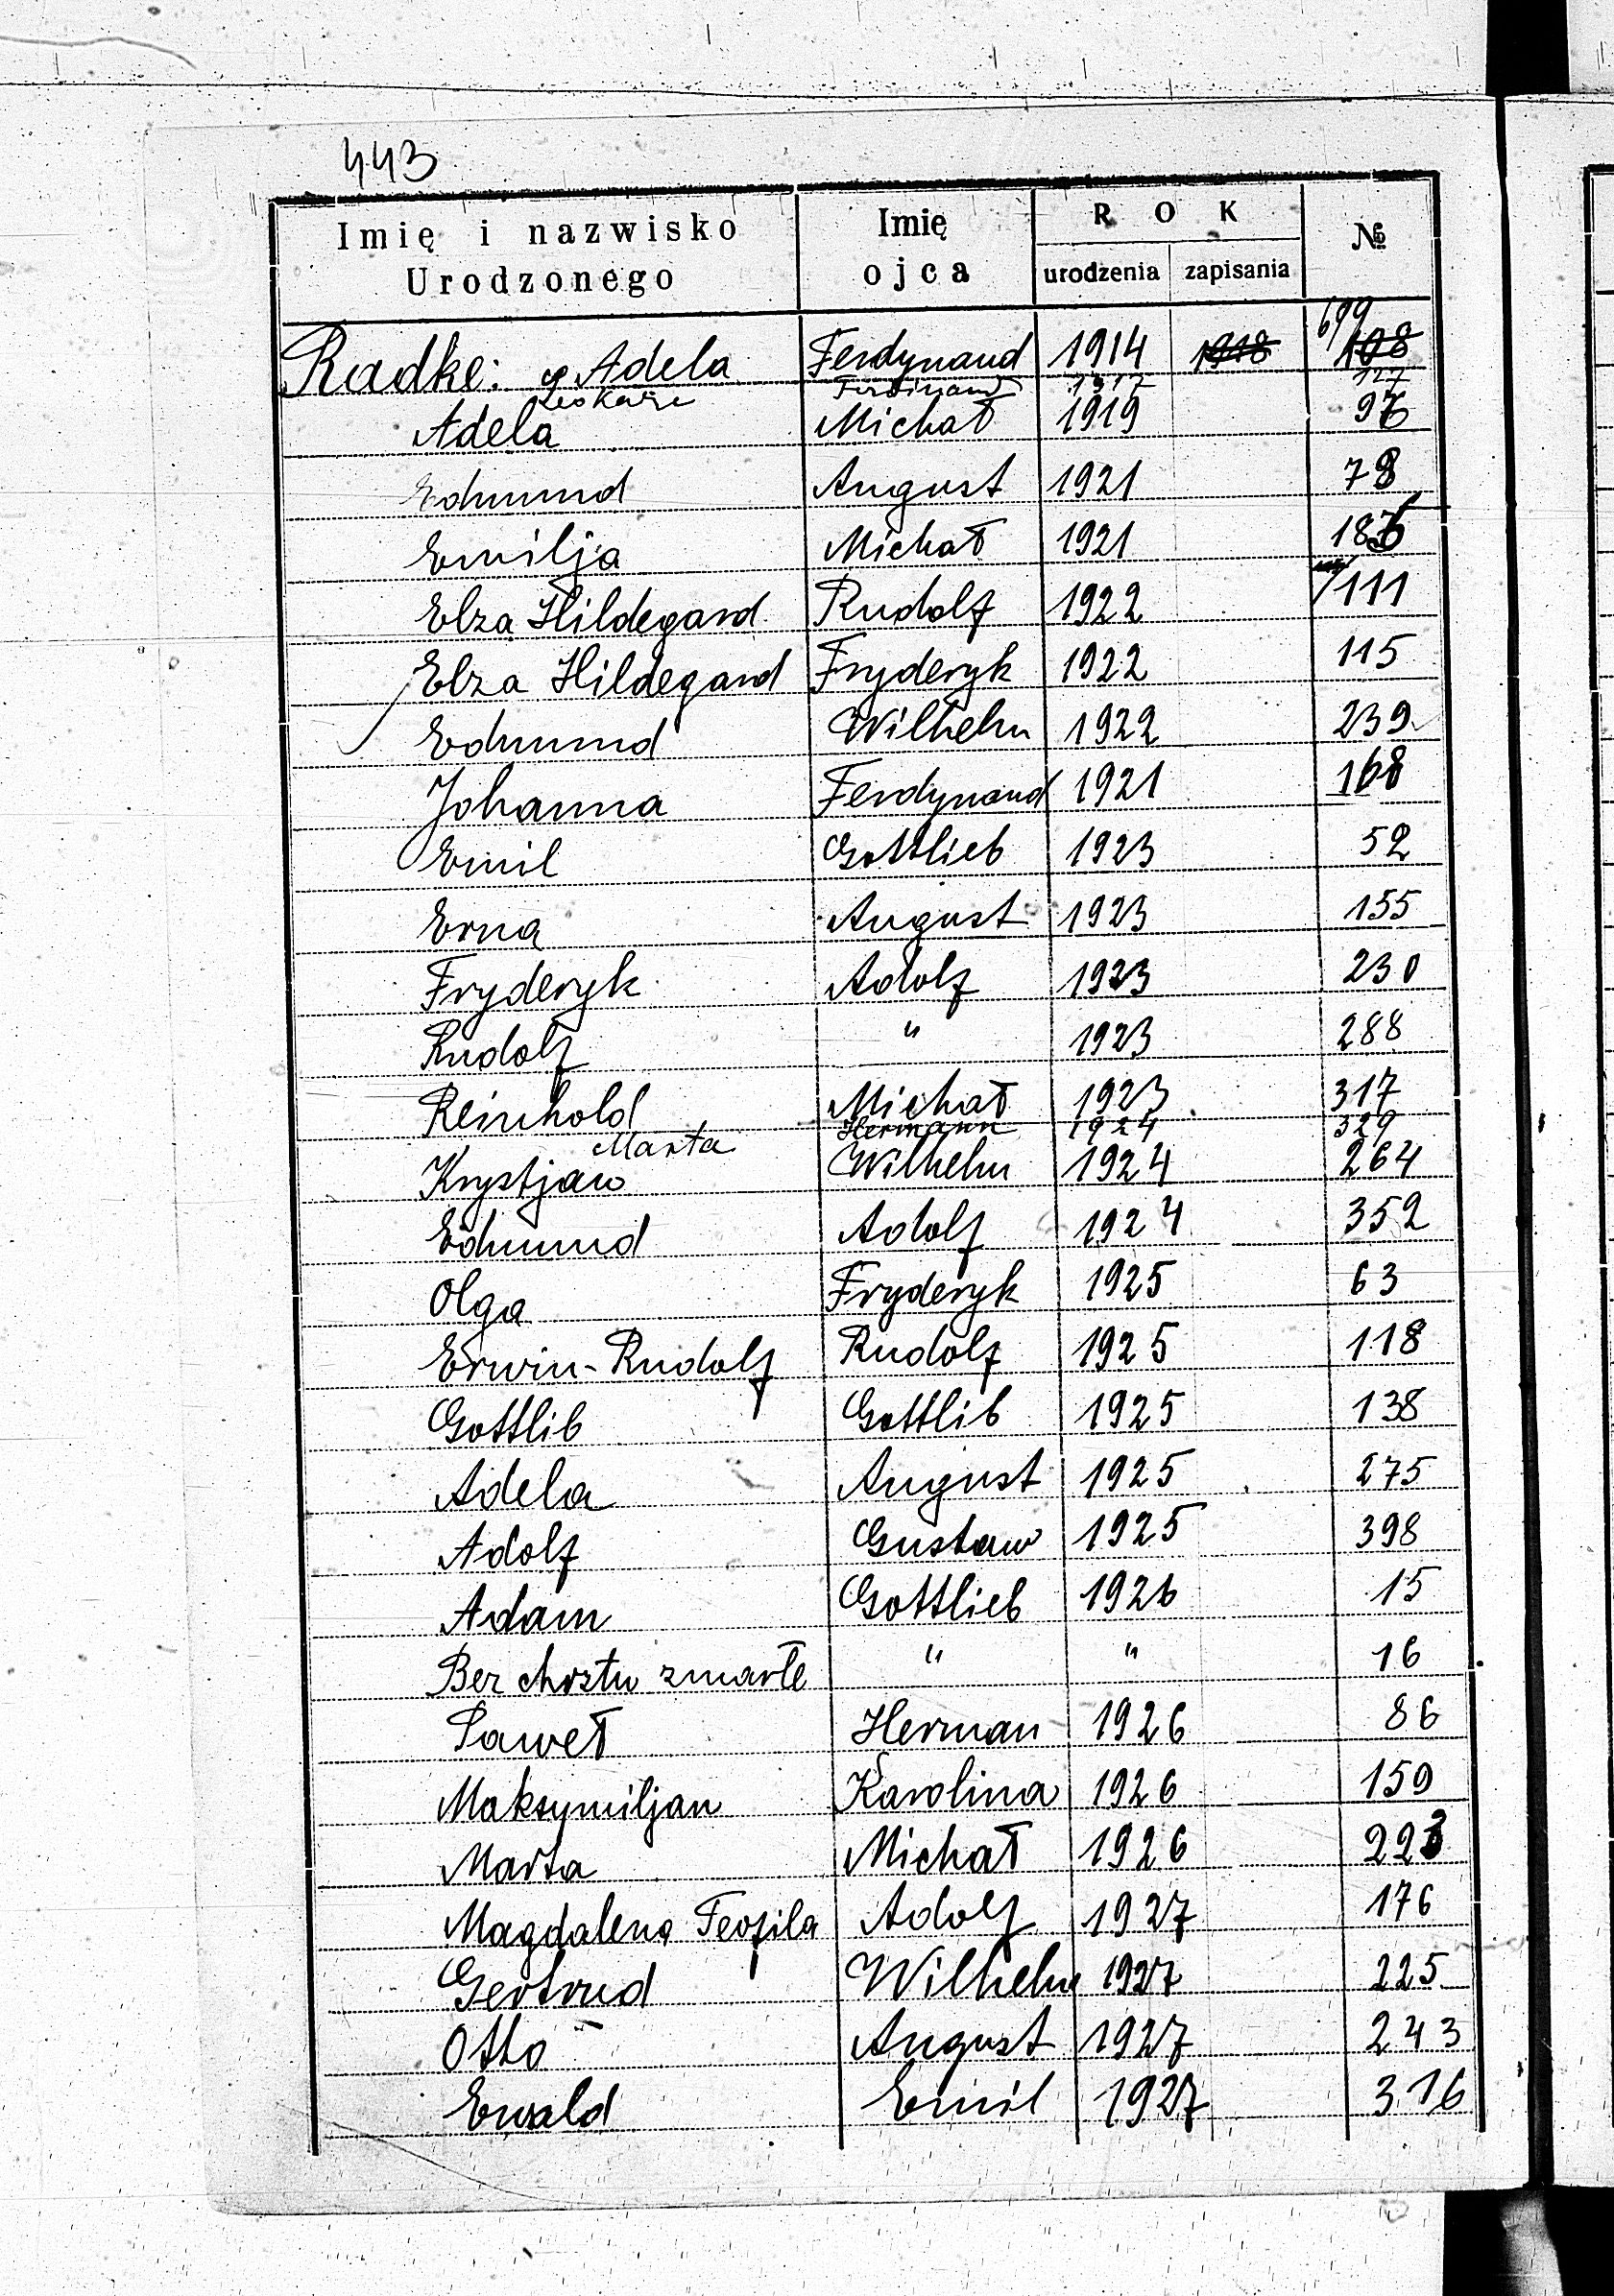 443
Imię i nazwisko Urodzonego Imię ojca ROK urodzenia zapisania №
Radke: Adela Ferdynand 1914 1918 699 108
Ferdinand 1917 127
Adela Michał 1919 96
Edmund August 1921 78
Emilja Michał 1921
Elza Hildegard Rudolf 1922 111
Elza Hildegard Fryderyk 1922 115
Edmund Wilhelm 1922 239
Johanna Ferdynand 1921 168
Emil Gottlieb 1923 52
Erna August 1923 155
Fryderyk Adolf 1923 230
Rudolf " 1923 288
Reinhold Michał 1923 317
Marta Hermann 1924 329
Krystjan Wilhelm 1924 264
Edmund Adolf 1924 352
Olga Fryderyk 1925 63
Erwin-Rudolf Rudolf 1925 118
Gottlib Gottlib 1925 138
Adela August 1925 275
Adolf Gustaw 1925 398
Adam Gottlieb 1926 15
Bez chrztu zmarłe " " 16
Paweł Herman 1926 86
Maksymiljan Karolina 1926 159
Marta Michał 1926 223
Magdalena Teofila Adolf 1927 176
Gertrud Wilhelm 1927 225
Otto August 1927 243
Ewald Emil 1927 316